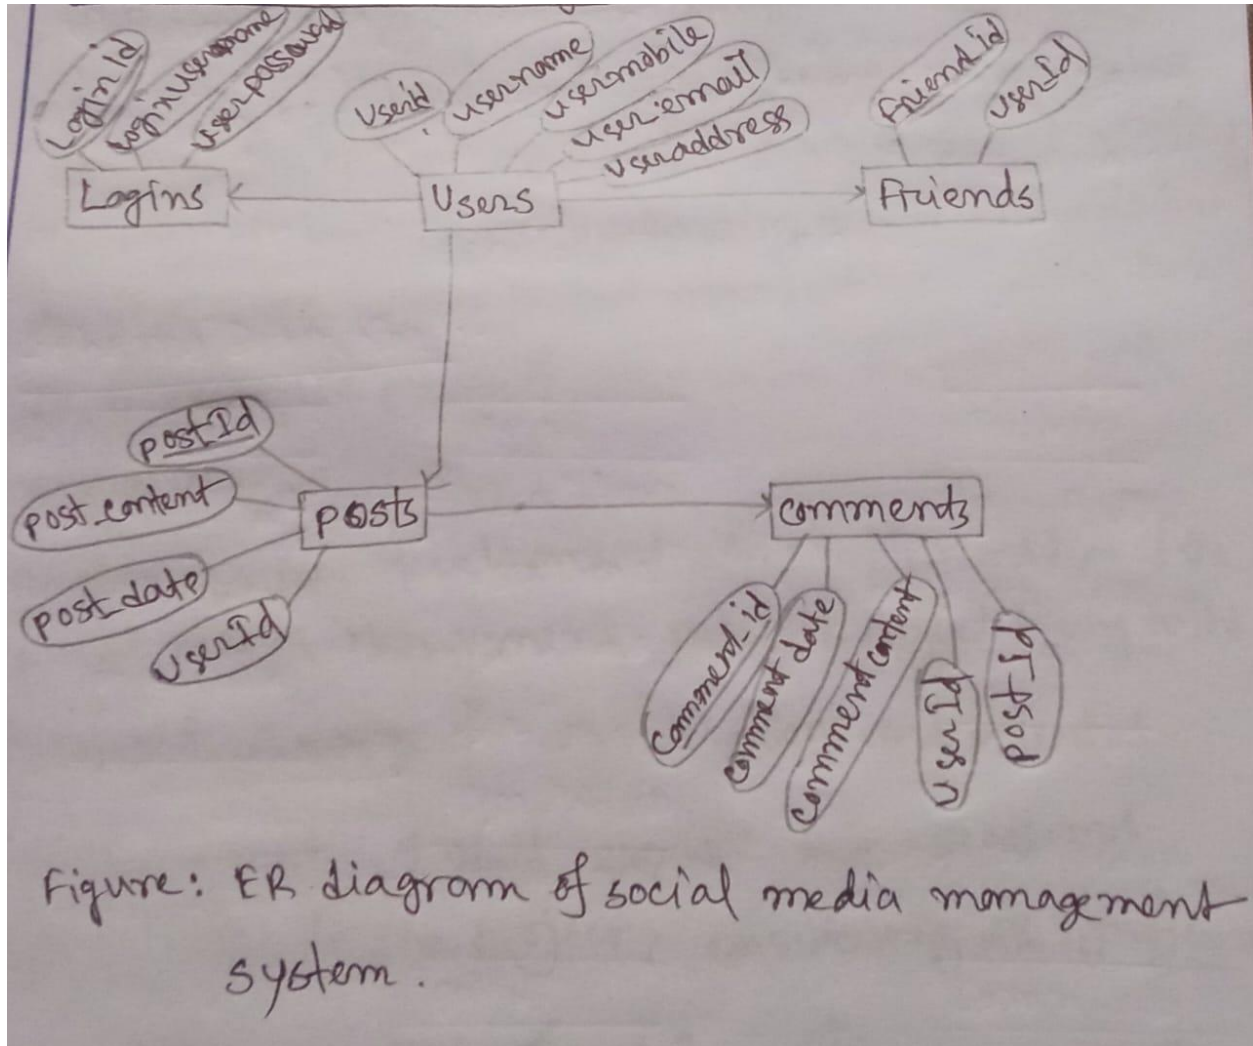 Login Id
loginusername
userpassword
Userid
username
usermobile
user_email
useraddress
friend_id
userId
Logins
Users
Friends
post_Id
post_content
post_date
userId
posts
comments
Comment_id
comment date
comment content
userId
post_Id
Figure: ER diagram of social media management
system.